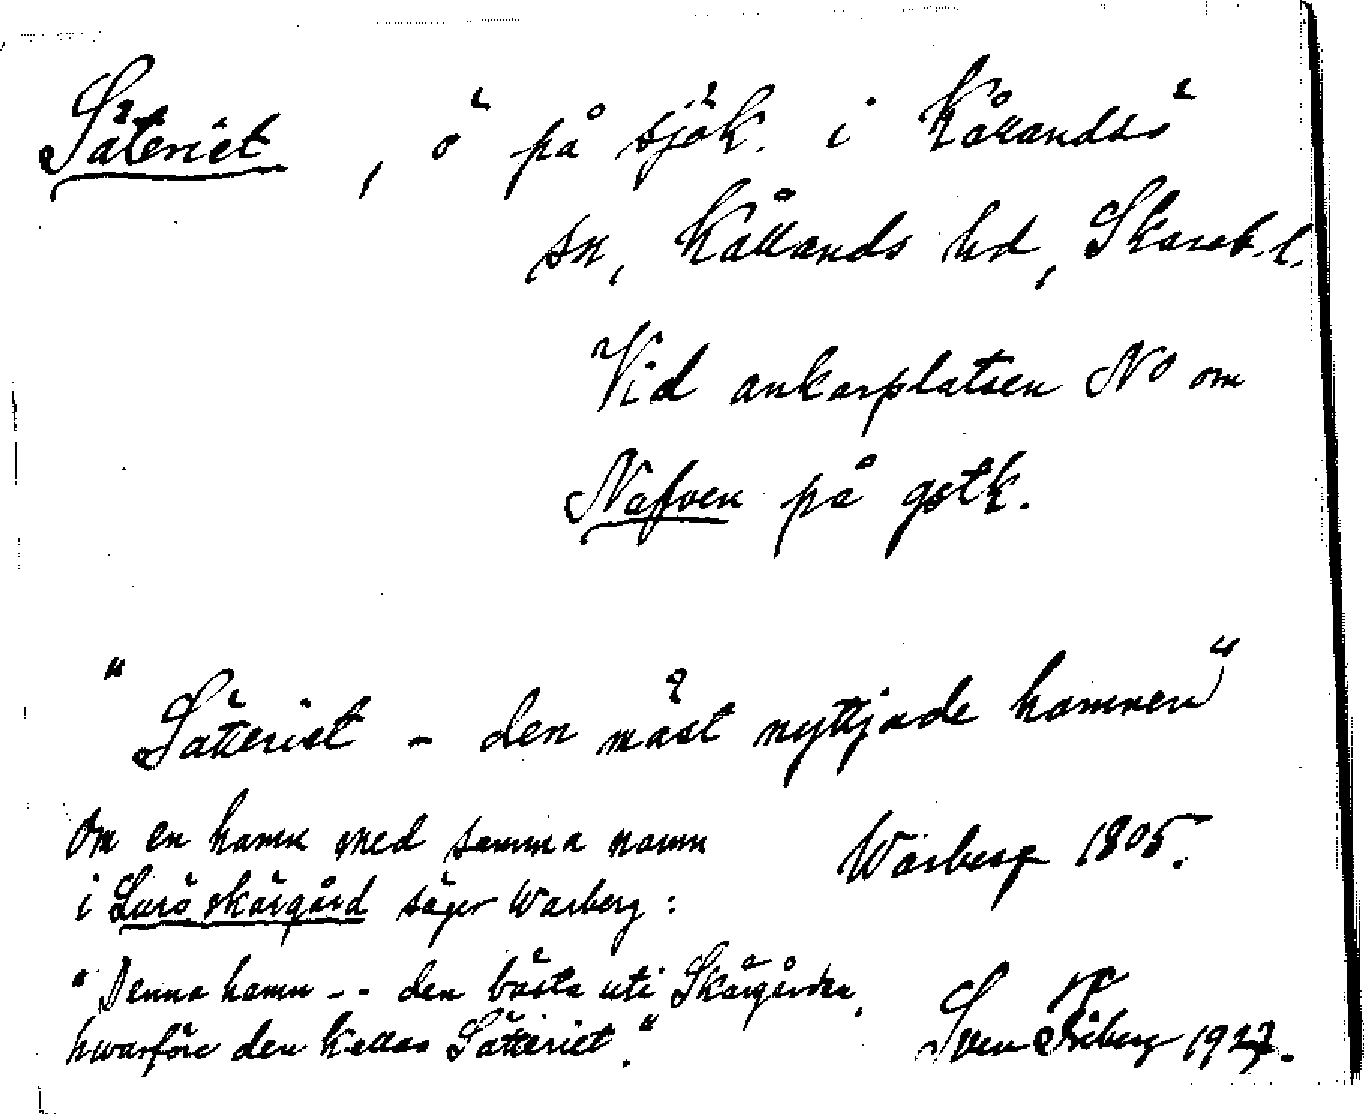 Säteriet, ö på sjök. i Kållandsö
sn, Kållands hd, Skarab. l.
Vid ankarplatsen NO om
Nafven på gstk.
"Sätteriet - den mäst nyttjade hamnen"
Warberg 1805.
Om en hamn med samma namn
i Lurö skärgård säger Warberg:
"Denna hamn -- den bästa uti Skärgården,
hwarföre den kallas Sätteriet."
Sven Friberg 1927.